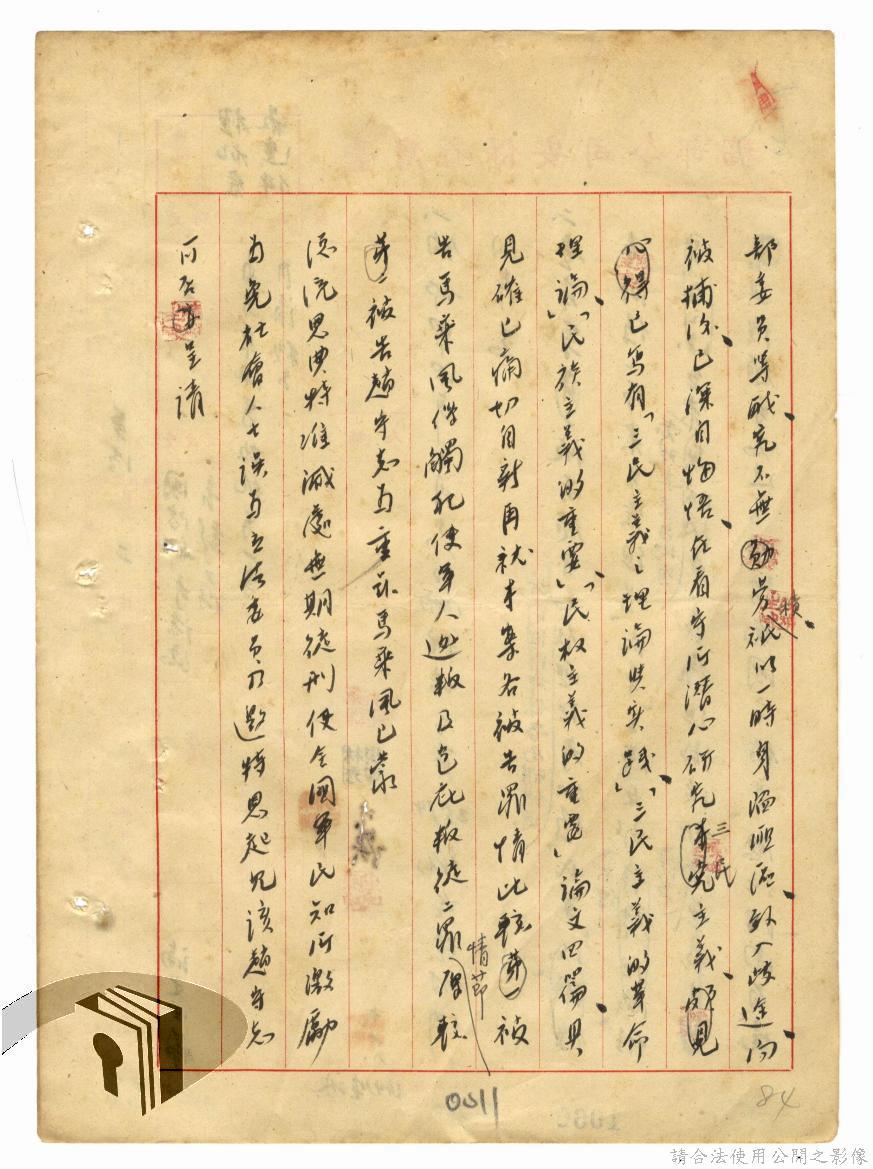 部委員等職究不無勛勞績祇以一時身陷匪區致入歧途而
被捕後已深自悔悟在看守所潛心研究三民主義頗見
心得已寫有「三民主義之理論與實踐」「三民主義的革命
理論」「民族主義的重要」「民權主義的重要」論文四篇具
見確已痛切自新再就本案各被告罪情比較第一被
告馬乘風係觸犯使軍人逃叛及包庇叛徒二罪情節較
第二被告趙守志為重茲馬乘風已蒙
浩蕩恩典特准減處無期徒刑使全國軍民知所激勵
為免社會人士誤為立法委員乃邀特恩起見該趙守志
可否亦呈請
0011
84
請合法使用公開之影像